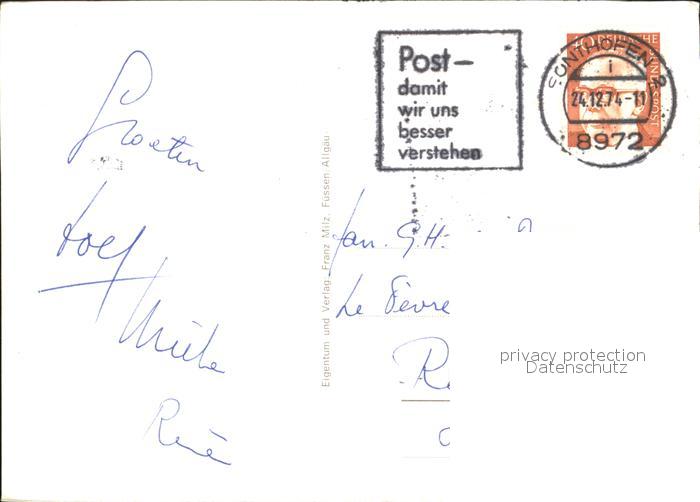 Groeten
Miek
René
Eigentum und Verlag Franz Milz, Füssen Allgäu
Post –
damit
wir uns
besser
verstehen
SONTHOFEN 2
i
24.12.74-11
8972
DEUTSCHE BUNDESPOST
fam. G.H.
Le Fèvre
R
privacy protection
Datenschutz